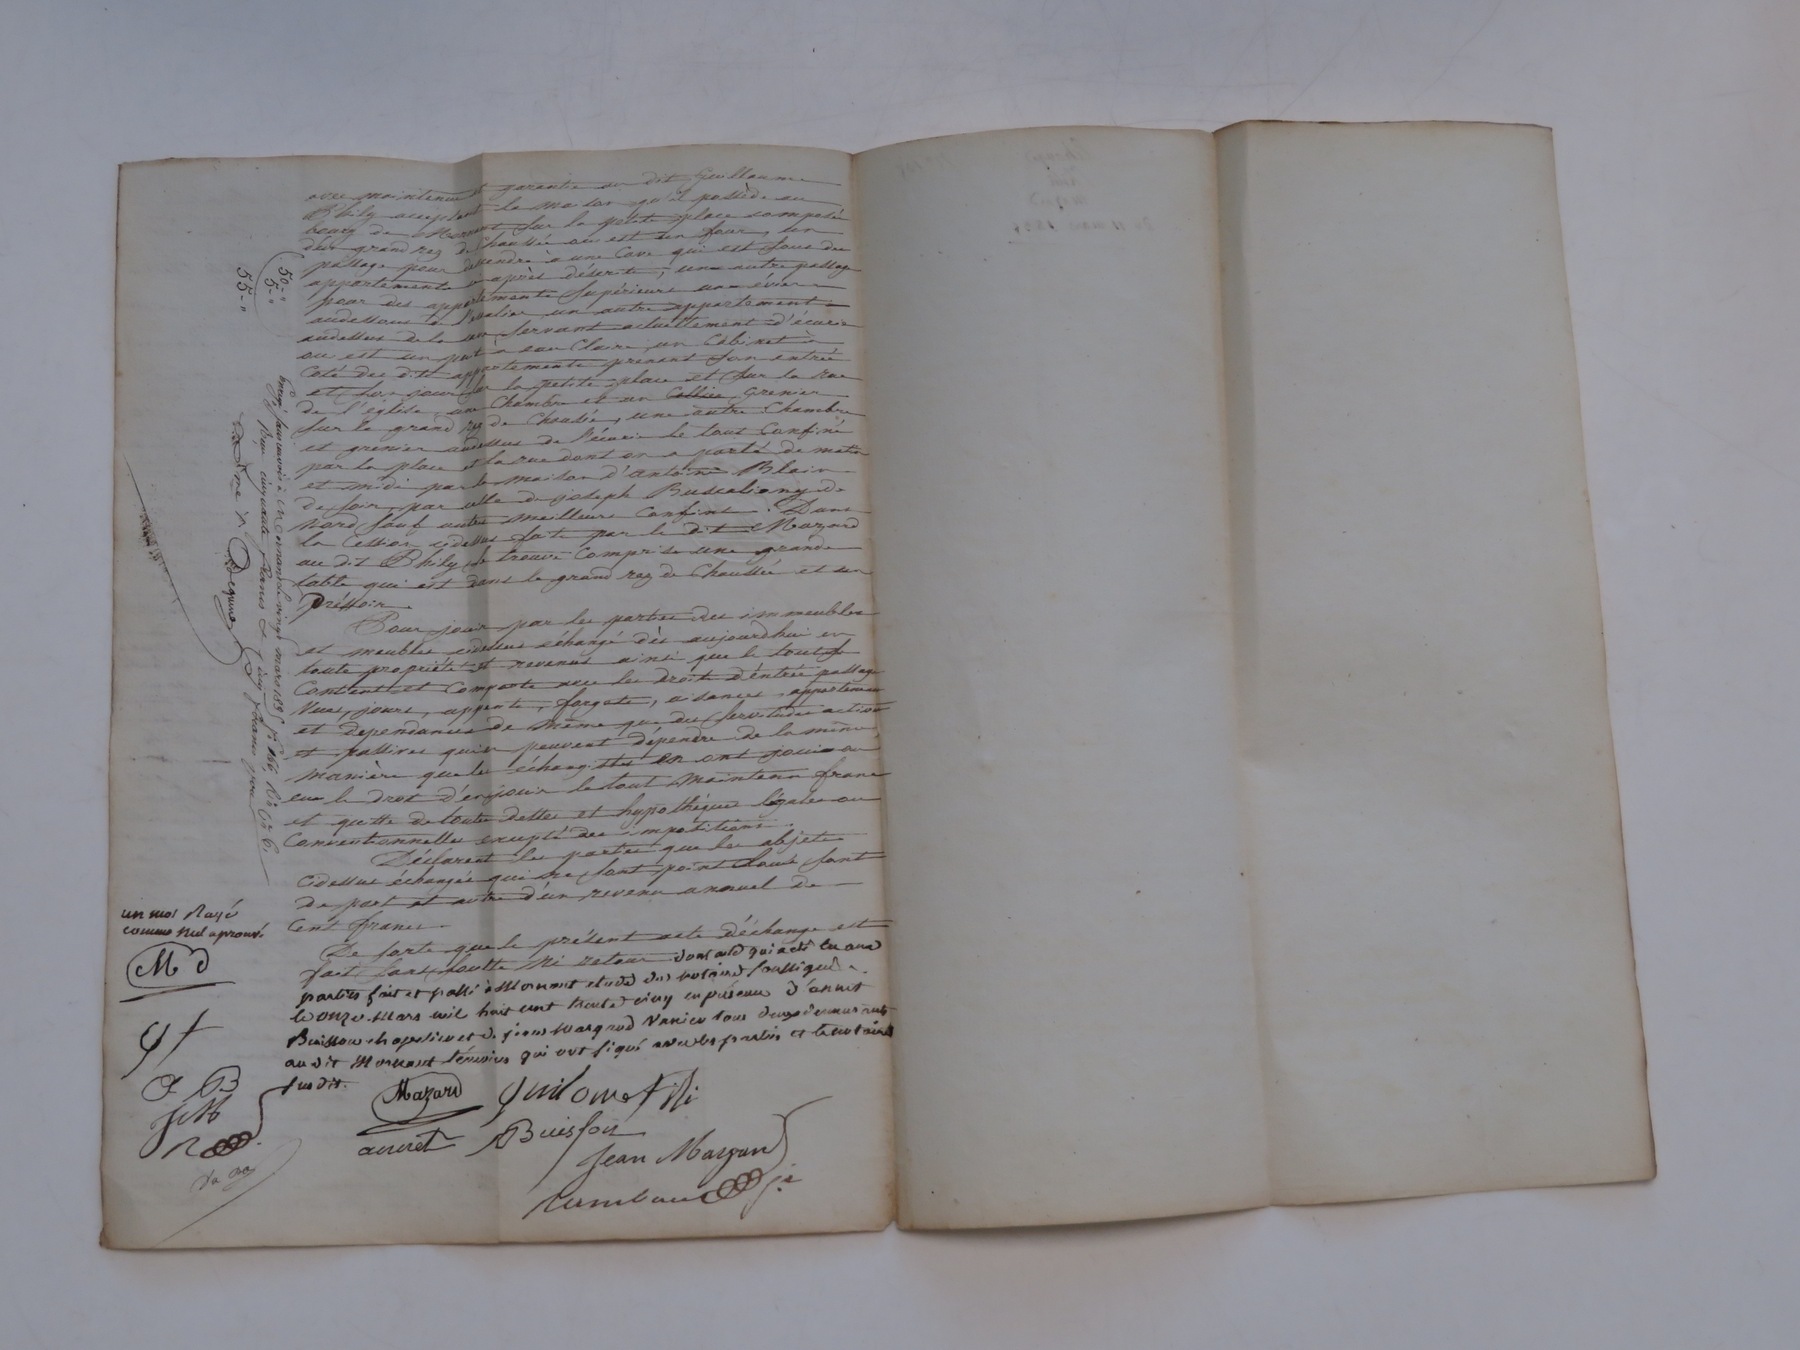 avec maintenue et garantie au dit Guillaume
Phily acceptant la maison qu'il possède au
bourg de Mornant sur la petite place composée
d'un grand rez de Chaussée ou est un four, un
passage pour descendre à une Cave qui est sous des
appartements ci après désérits, un autre passage
pour des appartements supérieurs un évier
audessous de l'escalier un autre appartement
audessus de la cave servant actuellement d'écurie
ou est un puit à eau Claire un Cabinet à
Coté des dits appartements prenant son entrée
et son jour sur la petite place et sur la rue
de l'église, une Chambre et un Grenier
sur le grand rez de Chaussée, une autre Chambre
et grenier audessus de l'écurie le tout Confiné
par la place et la rue dont on a parlé de matin
et midi par la maison d'antoine Blain
de soir, par celle de joseph Buscaligny de
Nord sauf autre meilleurs Confins. Dans
la Cession cidessus faite par le dit Mazard
au dit Phily se trouve Comprise une grande
table qui est dans le grand rez de Chaussée et un
Préssoir.
Pour jouir par les parties des immeubles
et meubles cidessus échangé dès aujourdhui en
toute propriété et revenus ainsi que le tout
Contient et Comporte avec les droits d'entrée passage
Vues, jours, appents, forgets, aisances, appartenan
et dependances de même que des servitudes actives
et passives qui en peuvent dépendre de la même
manière que les échangistes en ont joui ou
eu le droit d'en jouir le tout Maintenu franc
et quitte de toute dettes et hypothèques légales ou
Conventionnelles excepté des impositions.
Déclarent les parties que les objets
Cidessus échangés qui ne sont point loués sont
de part et autre d'un revenu annuel de
Cent francs.
De sorte que le présent acte d'échange est
fait sans soulte ni retour dont acte qui a été lu aux
parties fait et passé à Mornant etude du notaire soussigné
le onze Mars mil huit cent trente cinq en présence d'annet
Buisson chapelier et de jean Margand Vanier tous deux demeurants
au dit Mornant témoins qui ont signé avec les parties et le notaire
susdit.
Mazard
annet Buisson
Jean Margand
50-"
5-"
55-"
un mot Rayé
comme Nul aprouvé
M d